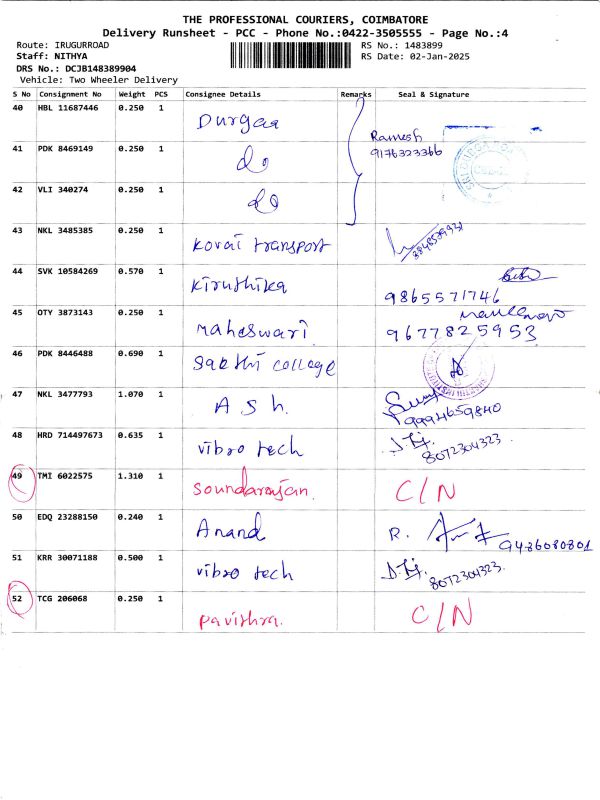 THE PROFESSIONAL COURIERS, COIMBATORE
Delivery Runsheet - PCC - Phone No.:0422-3505555 - Page No.:4
Route: IRUGURROAD RS No.: 1483899
Staff: NITHYA RS Date: 02-Jan-2025
DRS No.: DCJB148389904
Vehicle: Two Wheeler Delivery
S No Consignment No Weight PCS Consignee Details Remarks Seal & Signature
40 HBL 11687446 0.250 1 Durgaa Ramesh
9176323366
41 PDK 8469149 0.250 1 do
42 VLI 340274 0.250 1 do
43 NKL 3485385 0.250 1 Kovai transport
44 SVK 10584269 0.570 1 Kiruthika 9865571746
45 OTY 3873143 0.250 1 Maheswari 9677825953
46 PDK 8446488 0.690 1 Sakthi college
47 NKL 3477793 1.070 1 Ash. 9994659840
48 HRD 714497673 0.635 1 vibro tech 8072304323
49 TMI 6022575 1.310 1 Soundarajan. C/N
50 EDQ 23288150 0.240 1 Anand R. 9486080801
51 KRR 30071188 0.500 1 vibro tech 8072304323
52 TCG 206068 0.250 1 pavithra. C/N